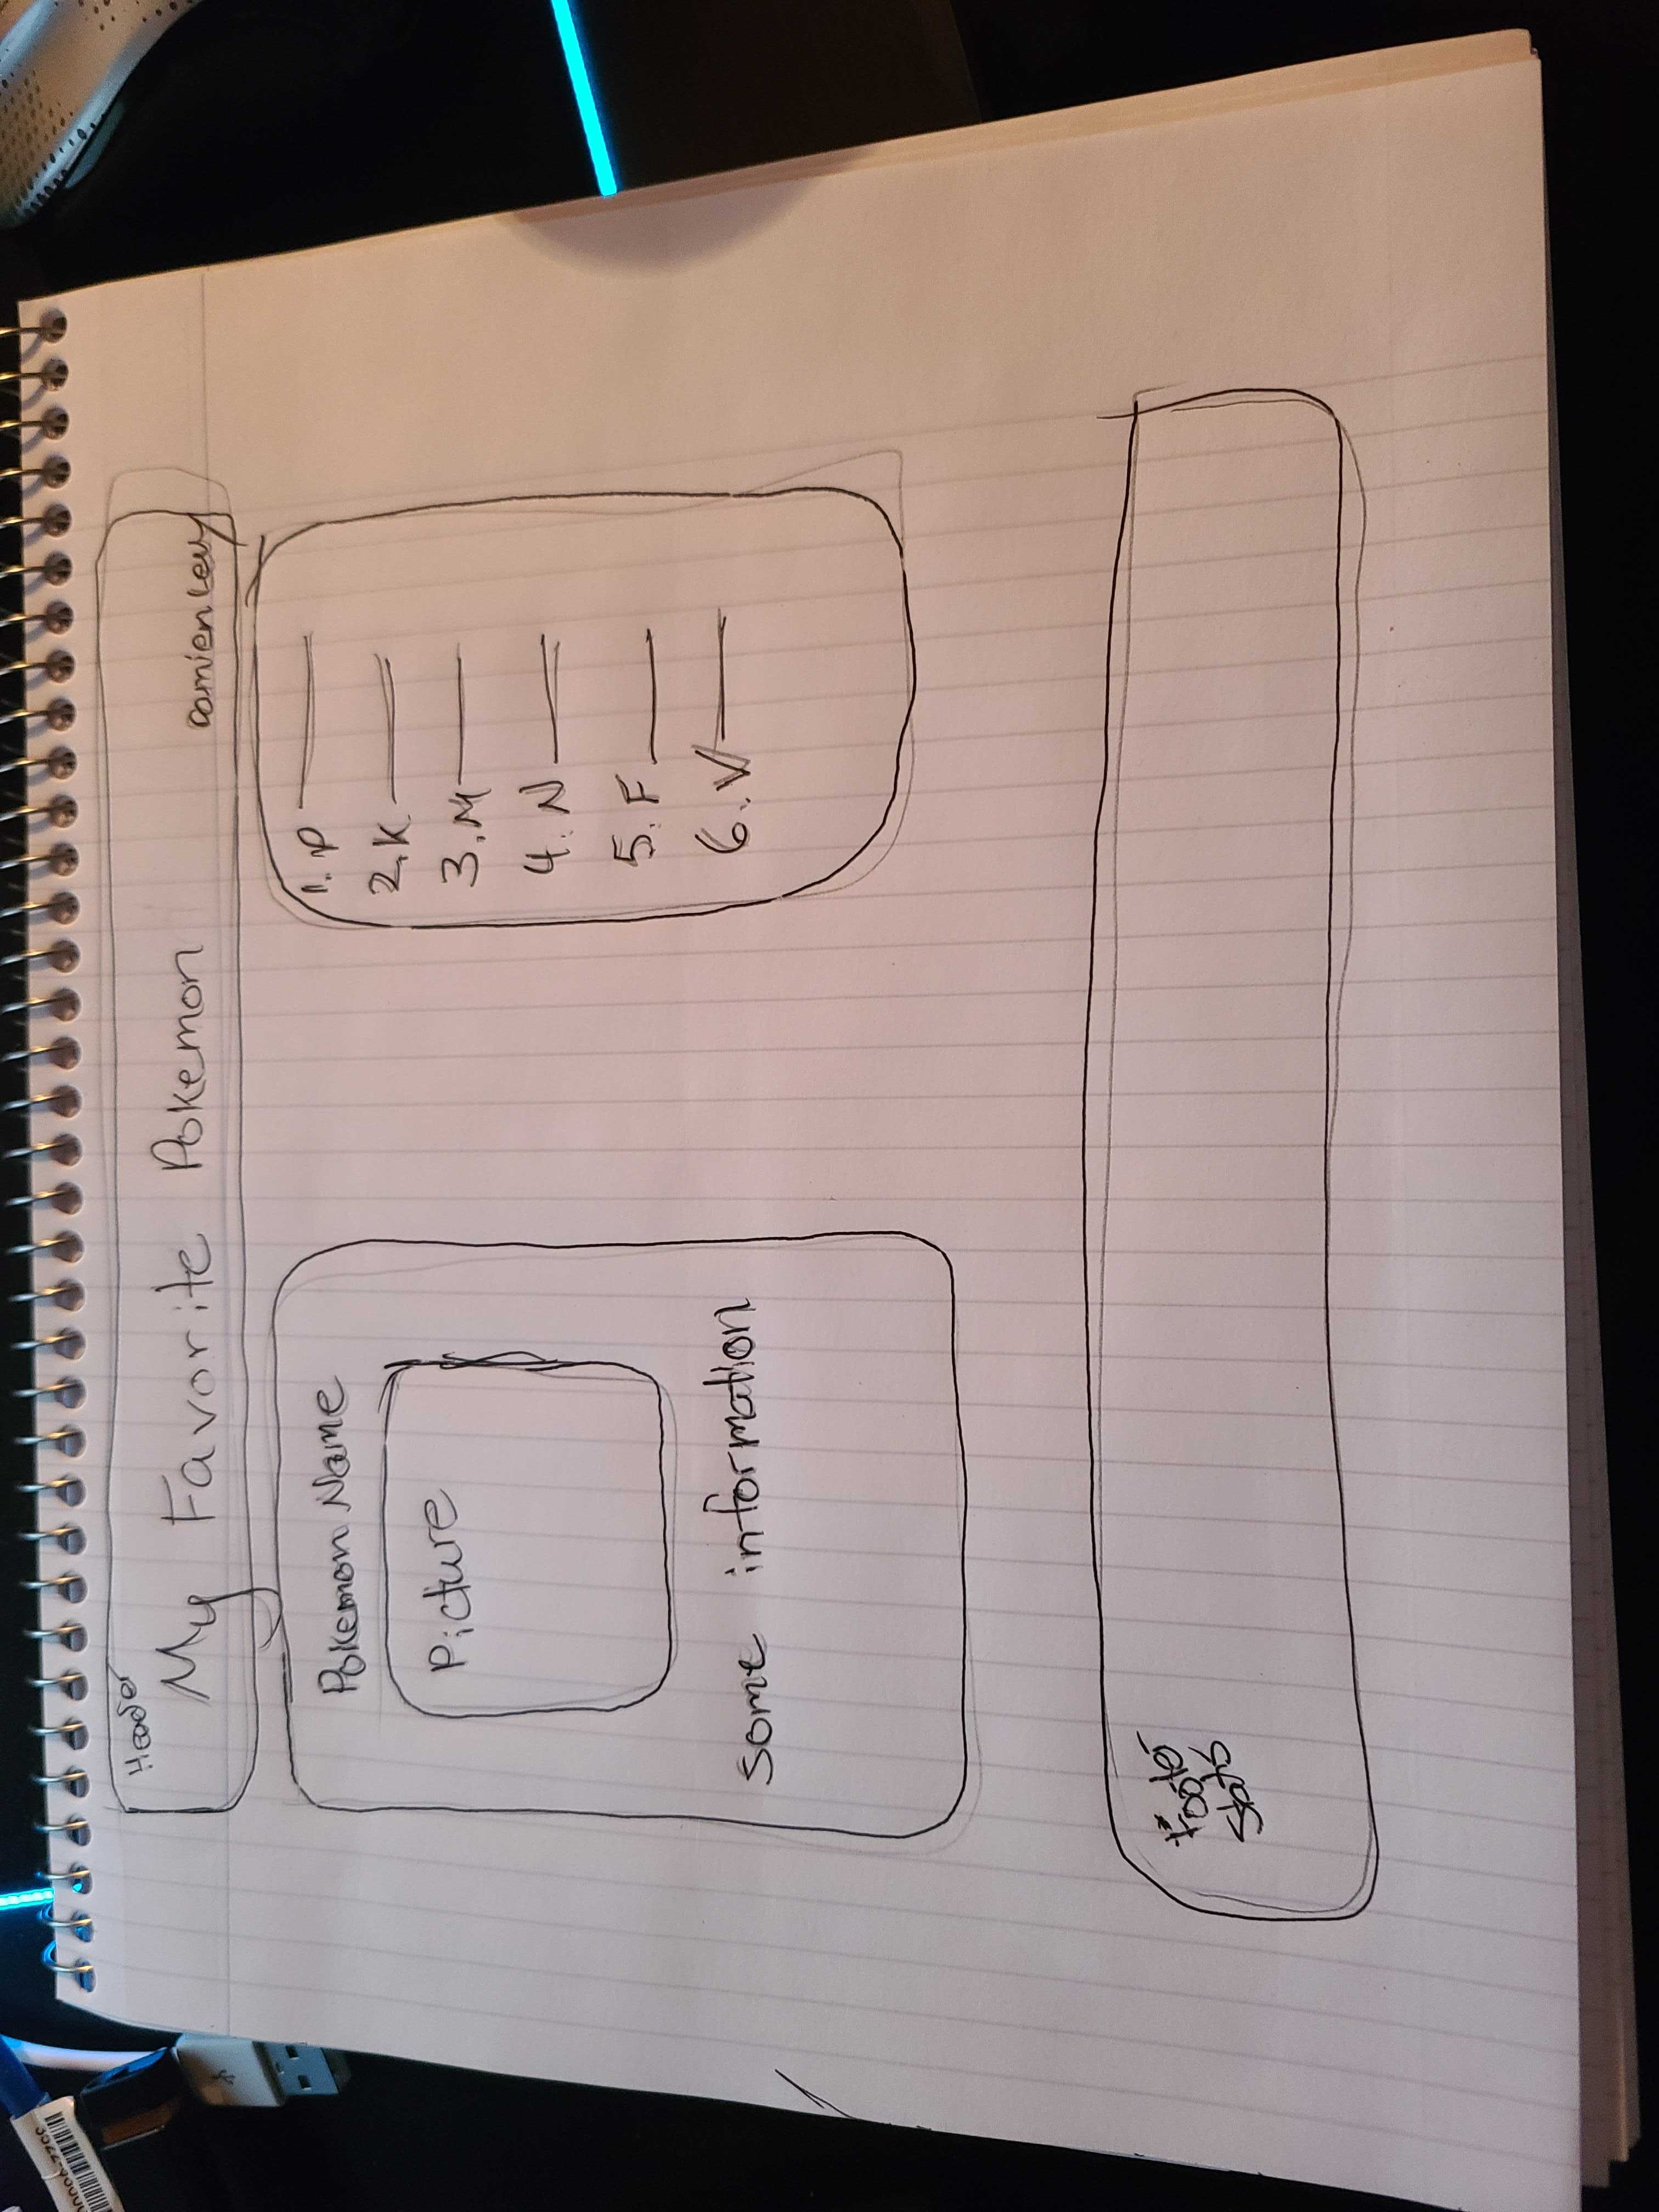 Header
My Favorite Pokemon
Damien Levy
Pokemon Name
Picture
Some information
1. P
2. K
3. M
4. N
5. F
6. V
footer
Stats